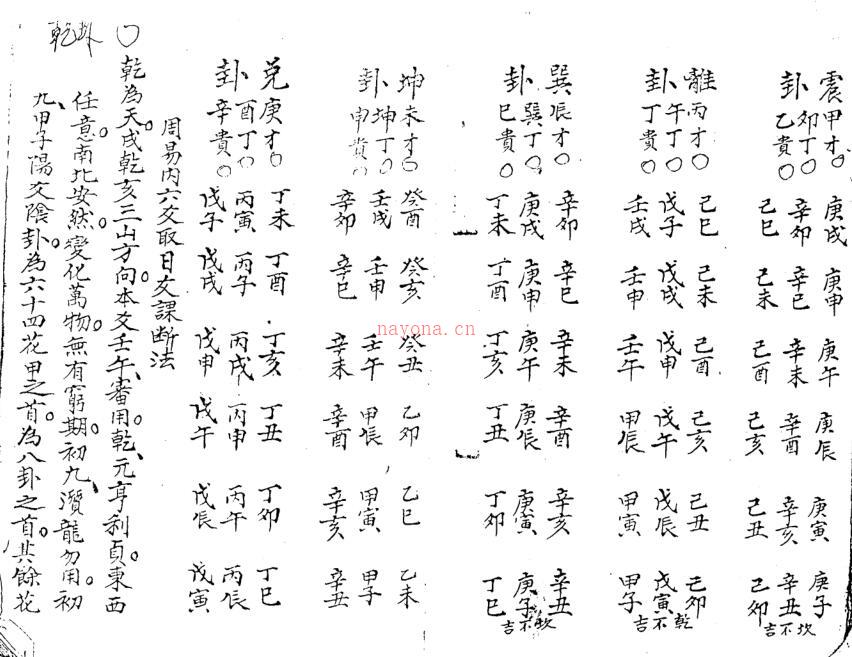 震甲才○ 庚戌 庚申 庚午 庚辰 庚寅 庚子
卦卯丁○ 辛卯 辛巳 辛未 辛酉 辛亥 辛丑
乙貴○ 己巳 己未 己酉 己亥 己丑 己卯
坎不吉
離丙才○ 己巳 己未 己酉 己亥 己丑 己卯
卦午丁○ 戊子 戊戌 戊申 戊午 戊辰 戊寅
丁貴○ 壬戌 壬申 壬午 甲辰 甲寅 甲子
乾不吉
巽辰才○ 辛卯 辛巳 辛未 辛酉 辛亥 辛丑
卦巽丁○ 庚戌 庚申 庚午 庚辰 庚寅 庚子
巳貴○ 丁未 丁酉 丁亥 丁丑 丁卯 丁巳
坎不吉
坤未才○ 癸酉 癸亥 癸丑 乙卯 乙巳 乙未
卦坤丁○ 壬戌 壬申 壬午 甲辰 甲寅 甲子
申貴○ 辛卯 辛巳 辛未 辛酉 辛亥 辛丑
兌庚才○ 丁未 丁酉 丁亥 丁丑 丁卯 丁巳
卦酉丁○ 丙寅 丙子 丙戌 丙申 丙午 丙辰
辛貴○ 戊子 戊戌 戊申 戊午 戊辰 戊寅
周易內六爻取日文課断法
乾卦
○乾為天。戌乾亥三山方向。本爻壬午、審用乾、元亨利貞。東西
任意。南北安然。變化萬物。無有窮期。初九、潛龍勿用。初
九、甲子陽爻陰卦。為六十四花甲之首。為八卦之首。其餘花
nayona.cn